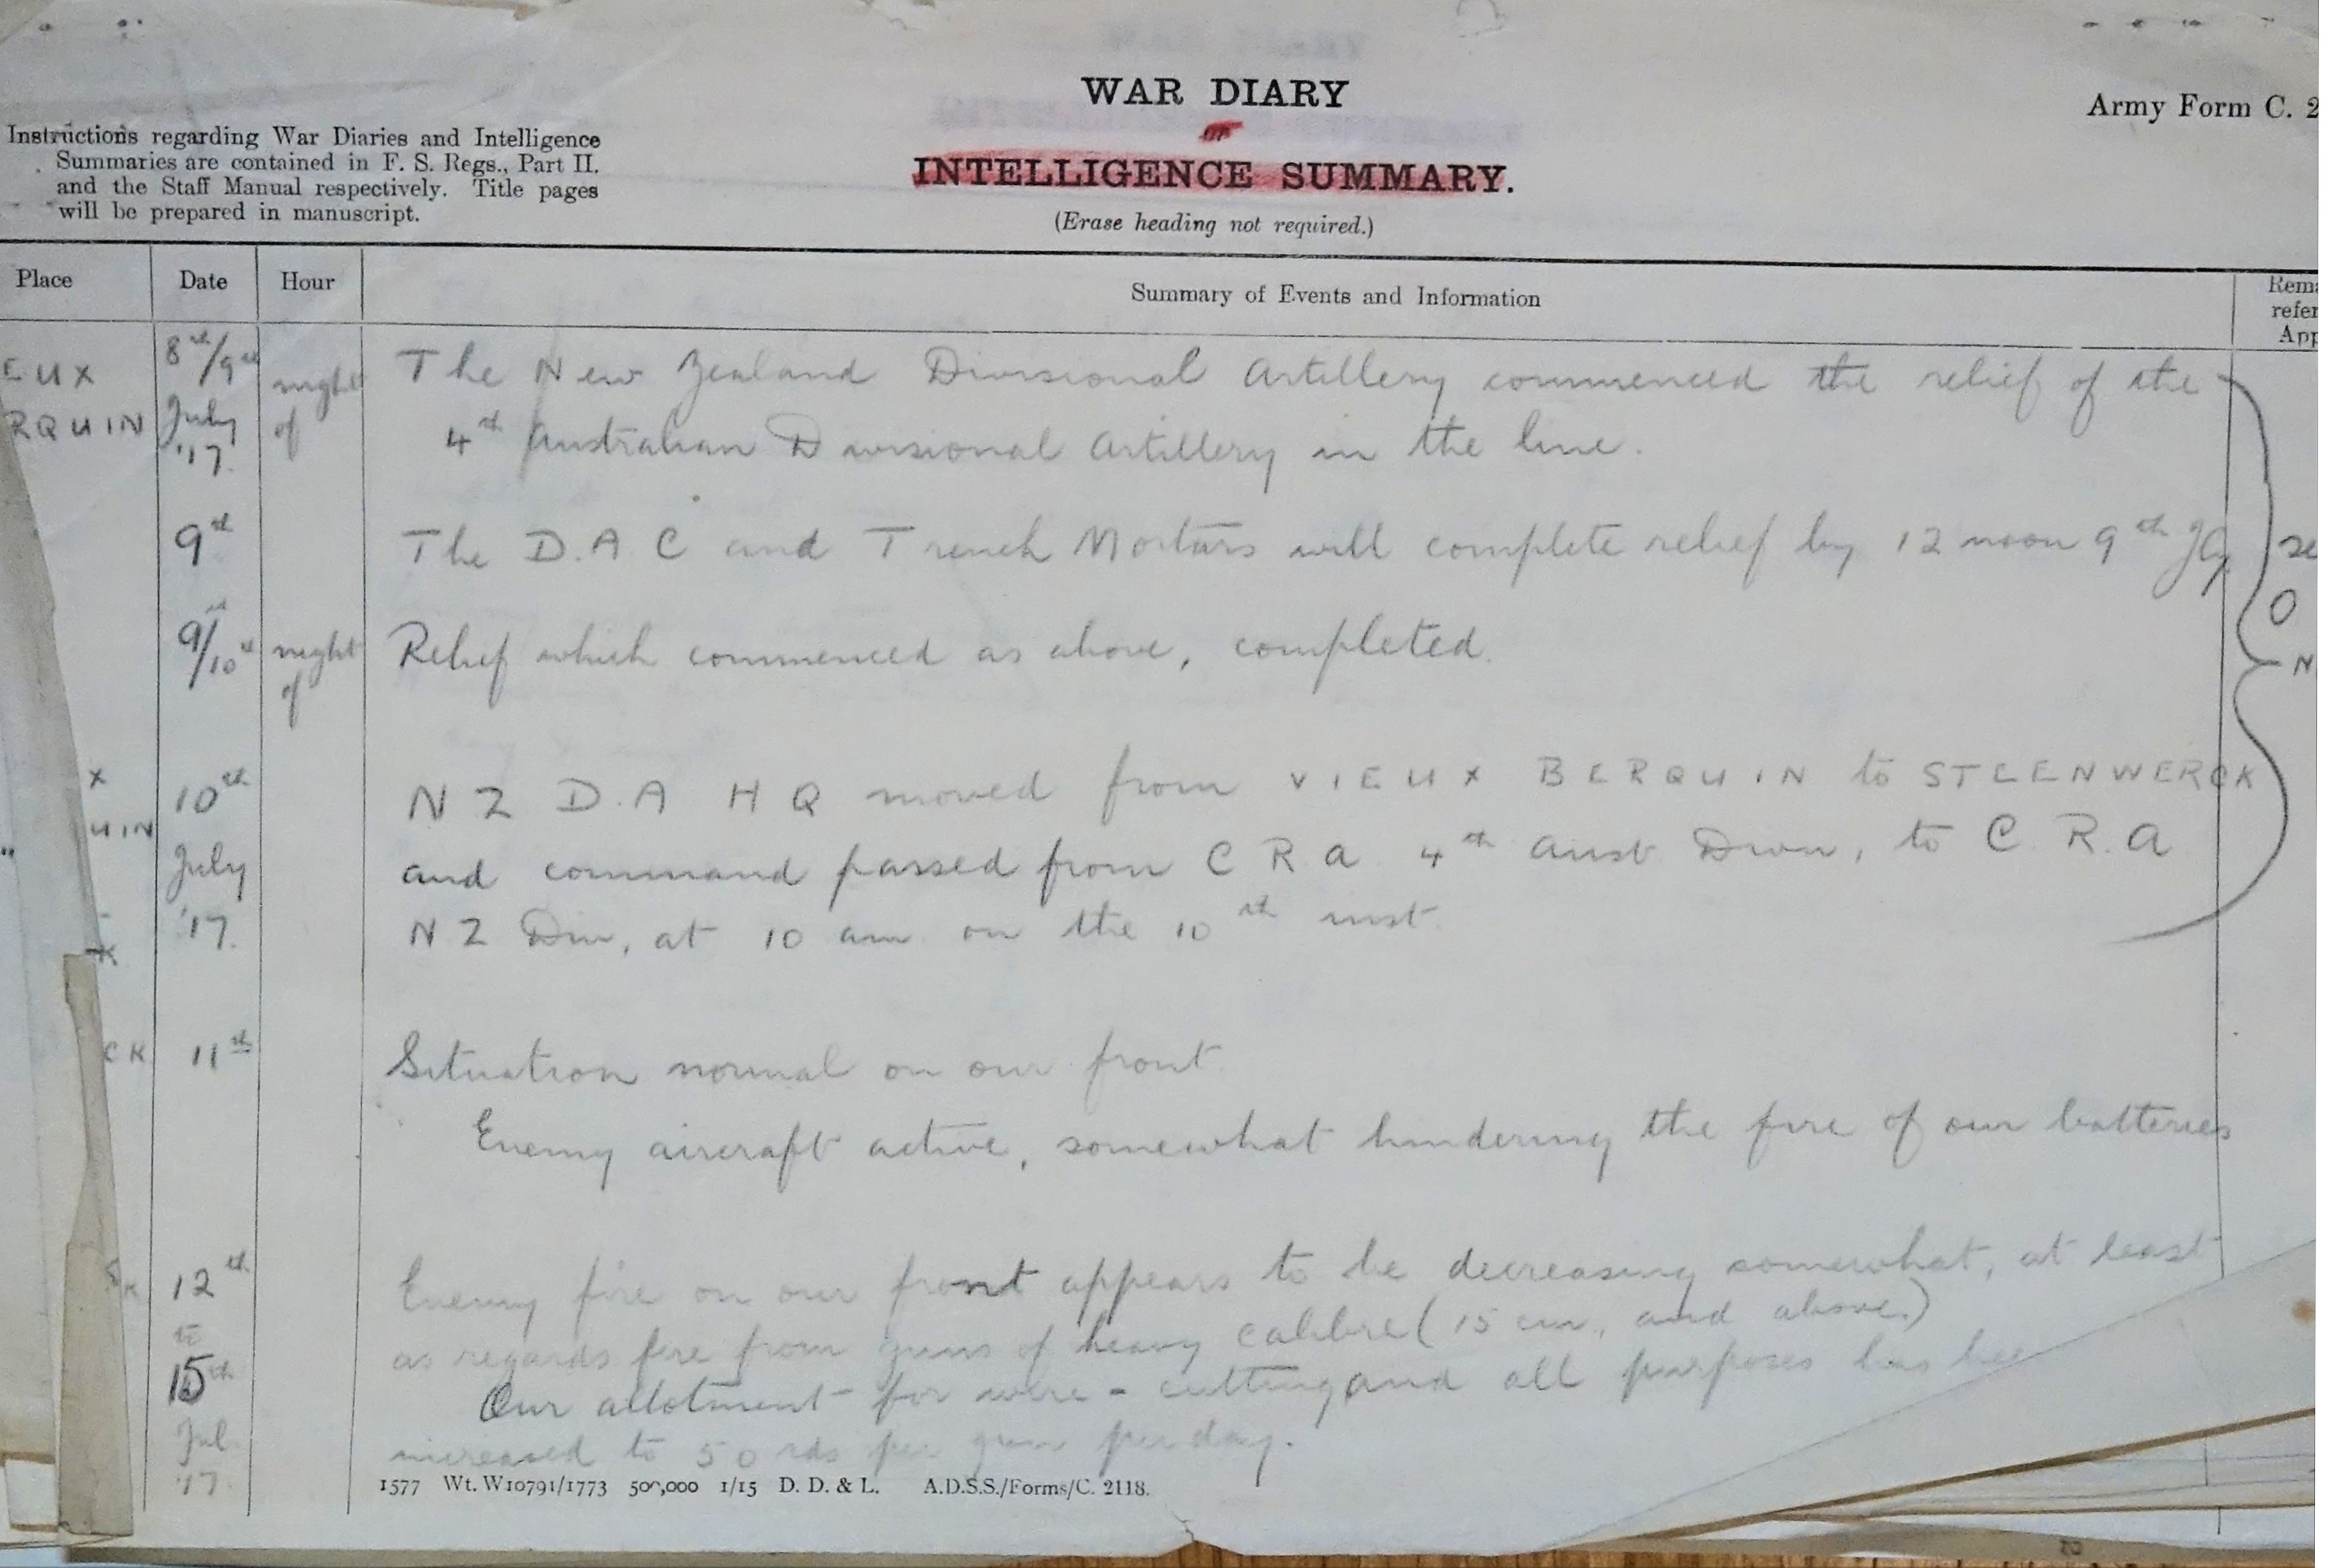 WAR DIARY
or
INTELLIGENCE SUMMARY.
(Erase heading not required.)
Army Form C. 2
Instructions regarding War Diaries and Intelligence
Summaries are contained in F. S. Regs., Part II.
and the Staff Manual respectively. Title pages
will be prepared in manuscript.
Place Date Hour Summary of Events and Information Rema
refer
App
EUX 8th/9th night The New Zealand Divisional Artillery commenced the relief of the
RQUIN July of 4th Australian Divisional Artillery in the line.
'17.
9th The D.A.C and Trench Mortars will complete relief by 12 noon 9th Jly se
O
9/10th night Relief which commenced as above, completed. N
of
X 10th N Z D.A H Q moved from VIEUX BERQUIN to STEENWERCK
UIN July and command passed from C R A 4th Aust Divn, to C. R. A
'17. N Z Div, at 10 am. on the 10th inst.
K
CK 11th Situation normal on our front.
Enemy aircraft active, somewhat hindering the fire of our batteries
K 12th Enemy fire on our front appears to be decreasing somewhat, at least
to as regards fire from guns of heavy calibre (15 cm., and above.)
15th Our allotment for wire-cutting and all purposes has bee
Jul increased to 50 rds per gun per day.
'17.
1577 Wt. W10791/1773 500,000 1/15 D. D. & L. A.D.S.S./Forms/C. 2118.